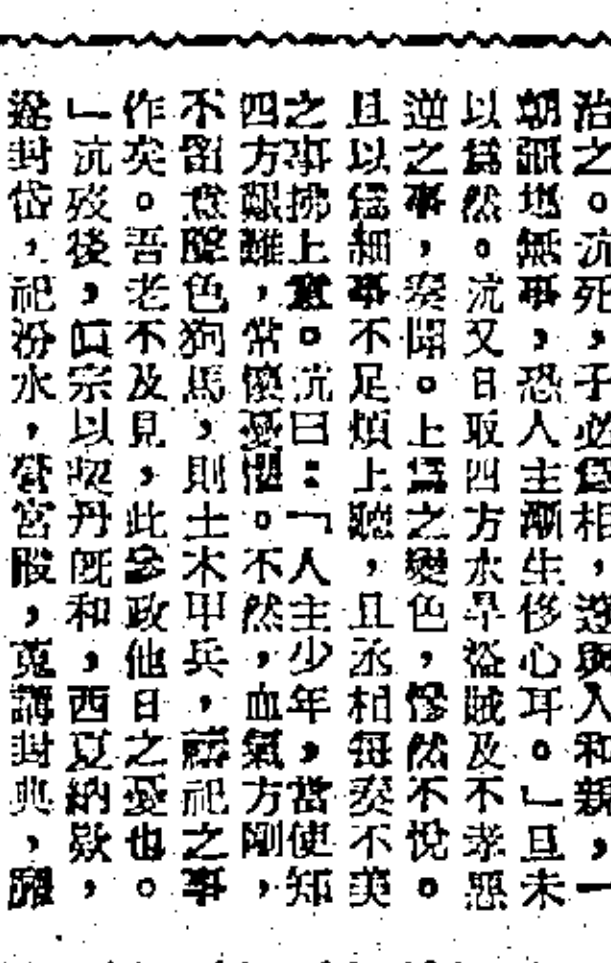 治之。沆死，子必爲相，遂與人和親，一
朝疆埸無事，恐人主漸生侈心耳。」旦未
以爲然。沆又日取四方水旱盜賊及不孝惡
逆之事，奏聞。上爲之變色，慘然不悅。
且以爲細事不足煩上聽，且丞相每奏不美
之事拂上意。沆曰：「人主少年，當使知
四方艱難，常懷憂懼。不然，血氣方剛，
不留意聲色狗馬，則土木甲兵，禱祀之事
作矣。吾老不及見，此參政他日之憂也。
」沆歿後，眞宗以契丹旣和，西夏納款，
遂封岱，祀汾水，營宮殿，蒐講封典，靡